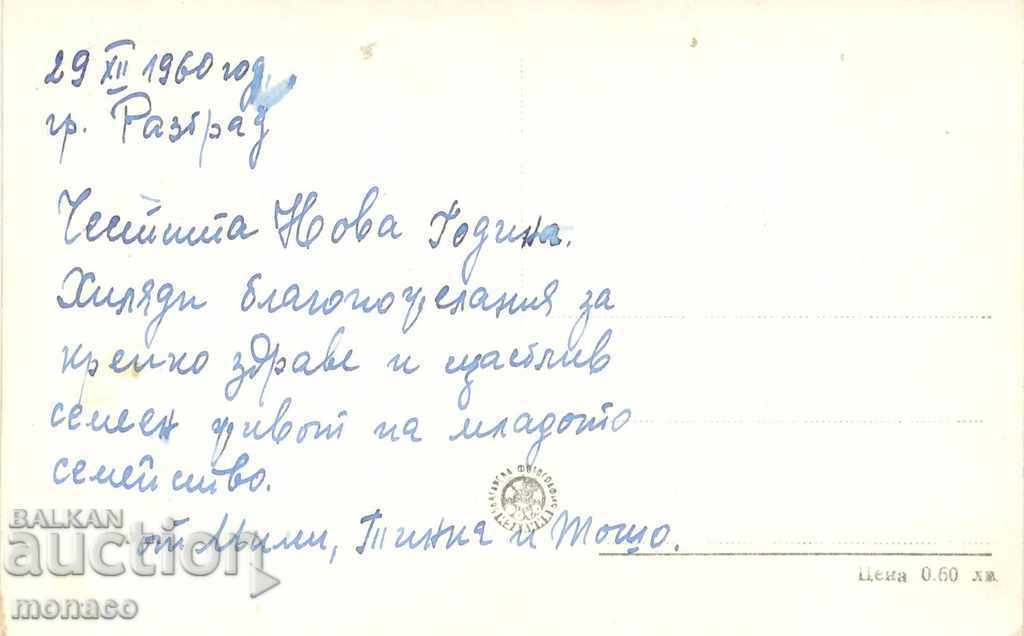 29 XII 1960 год.
гр. Разград
Честита Нова Година.
Хиляди благопожелания за
крепко здраве и щастлив
семеен живот на младото
семейство.
от Мими, Тинка и Тошо.
Цена 0.60 лв.
BALKAN
auction
monaco